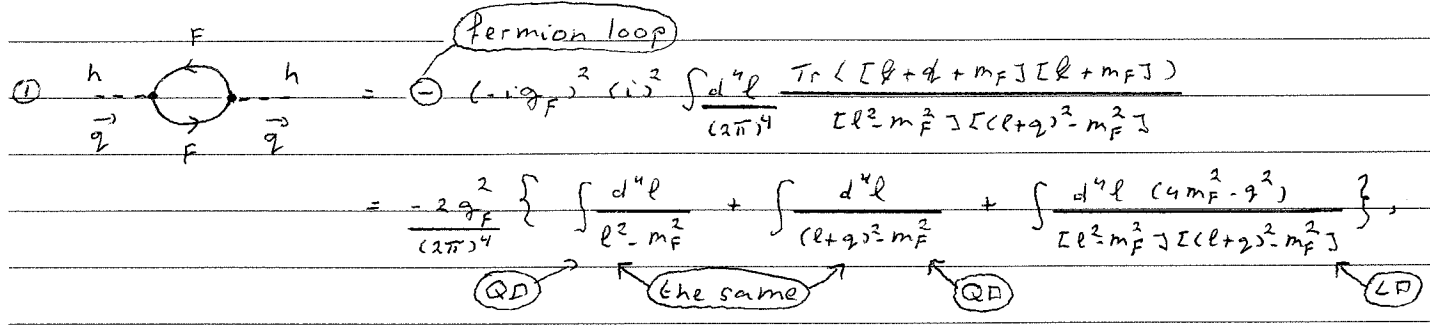 fermion loop
F
① h h = ⊖ (-ig_F)² (i)² ∫ d⁴ℓ/(2π)⁴ Tr([ℓ̸+q̸+m_F][ℓ̸+m_F]) / [ℓ²-m_F²][(ℓ+q)²-m_F²]
q⃗ F q⃗
= -2g_F²/(2π)⁴ { ∫ d⁴ℓ/(ℓ²-m_F²) + ∫ d⁴ℓ/((ℓ+q)²-m_F²) + ∫ d⁴ℓ (4m_F²-q²) / [ℓ²-m_F²][(ℓ+q)²-m_F²] },
QD the same QD LD